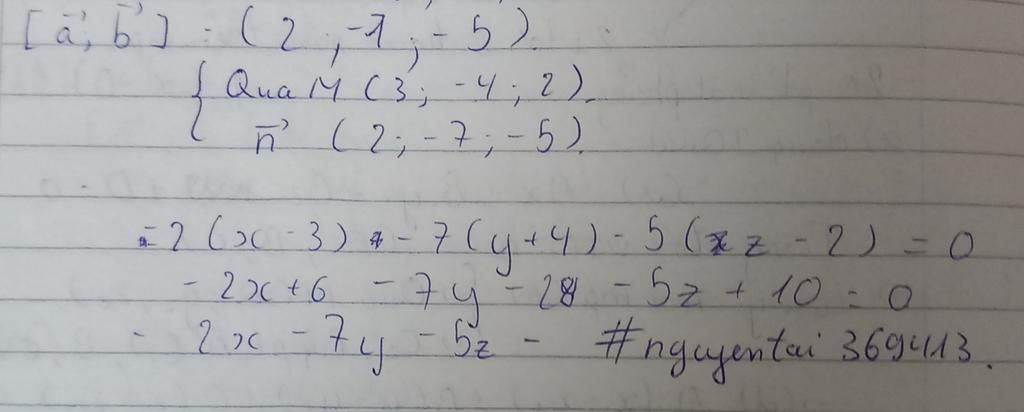 [a⃗, b⃗] = (2; -7; -5).
{ Qua M (3; -4; 2).
n⃗ (2; -7; -5).
= 2(x - 3) - 7(y + 4) - 5(z - 2) = 0
- 2x + 6 - 7y - 28 - 5z + 10 = 0
- 2x - 7y - 5z - #nguyentai 369413.